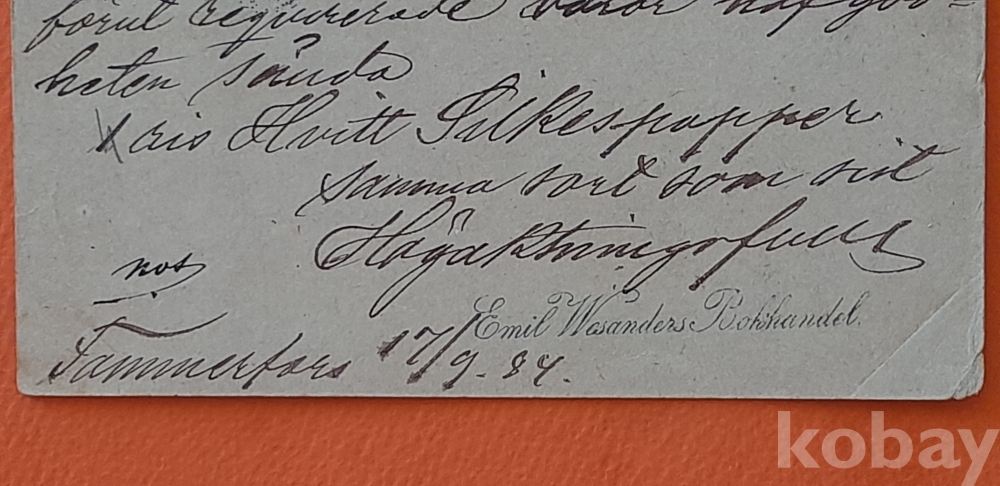 förut requirerade varor haf god-
heten sända
1 ris Hvitt Silkespapper
samma sort som sist
Högaktningsfullt
Emil Wesanders Bokhandel.
Tammerfors 17/9. 84.
kobay